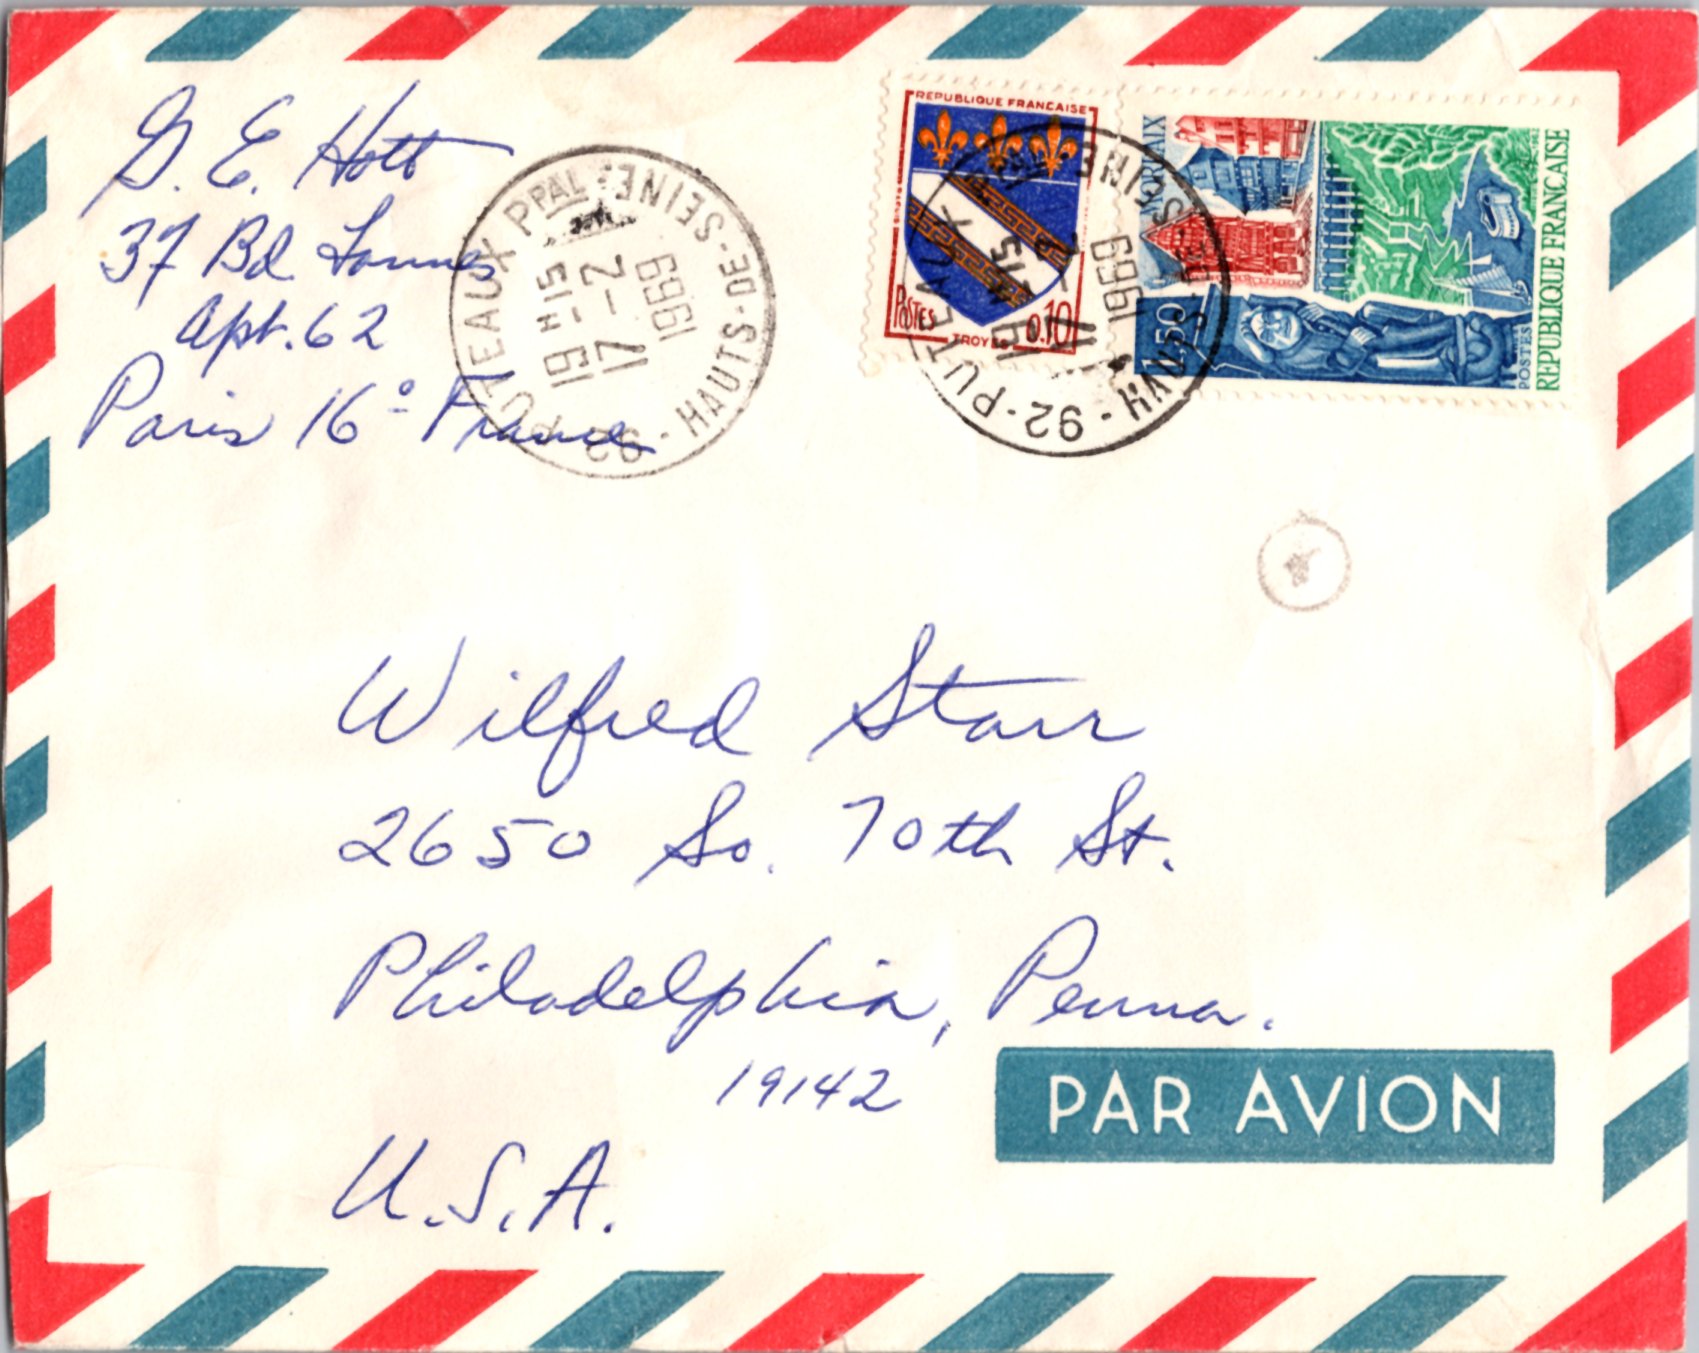 G. E. Hott
37 Bd Lannes
Apt. 62
Paris 16° France
92 - PUTEAUX PPAL
HAUTS-DE-SEINE
19 H 15
17 - 2
1969
REPUBLIQUE FRANCAISE
POSTES
0.10
TROYES
MORLAIX
1.50
POSTES
REPUBLIQUE FRANCAISE
92 - PUTEAUX
HAUTS-DE-SEINE
19 H 15
1969
Wilfred Starr
2650 So. 70th St.
Philadelphia, Penna.
19142
U.S.A.
PAR AVION